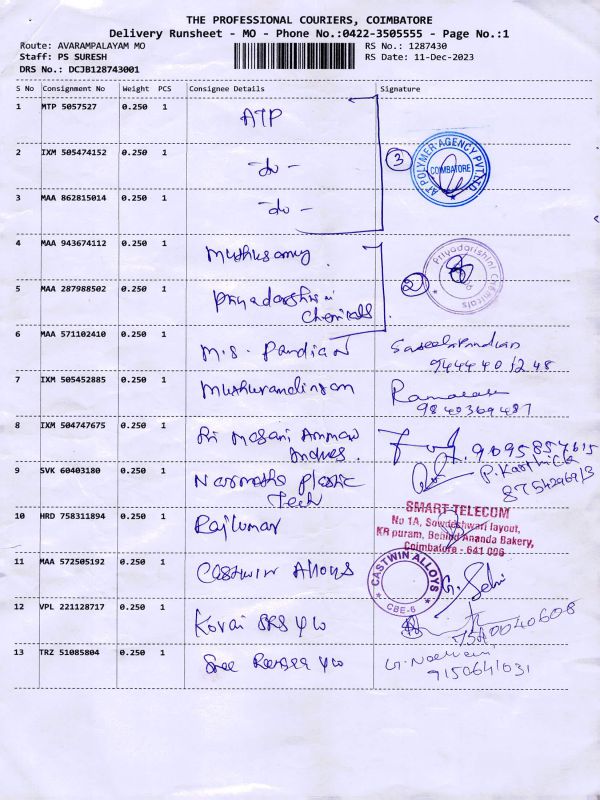 THE PROFESSIONAL COURIERS, COIMBATORE
Delivery Runsheet - MO - Phone No.:0422-3505555 - Page No.:1
Route: AVARAMPALAYAM MO
RS No.: 1287430
Staff: PS SURESH
RS Date: 11-Dec-2023
DRS No.: DCJB128743001
S No Consignment No Weight PCS Consignee Details Signature
1 MTP 5057527 0.250 1 ATP
2 IXM 505474152 0.250 1 -do-
3 AT POLYMER AGENCY PVT LTD COIMBATORE
3 MAA 862815014 0.250 1 -do-
4 MAA 943674112 0.250 1 Muthusamy
2 Priyadarishini Chemicals
5 MAA 287988502 0.250 1 Priyadarshini
Chemicals
6 MAA 571102410 0.250 1 M.S. Pandian
7 IXM 505452885 0.250 1
9840369487
8 IXM 504747675 0.250 1 Sri Masani Amman
P. Karthick
9 SVK 60403180 0.250 1 Narmatha Plastic
Tech
10 HRD 758311894 0.250 1 Rajkumar
SMART TELECOM
No 1A, Sowdeshwari layout,
KR puram, Behind Ananda Bakery,
Coimbatore - 641 006
11 MAA 572505192 0.250 1 Castwin Alloys
CASTWIN ALLOYS CBE-6
G. Selvi
12 VPL 221128717 0.250 1 Kovai SRS
13 TRZ 51085804 0.250 1 Sree
9150641031